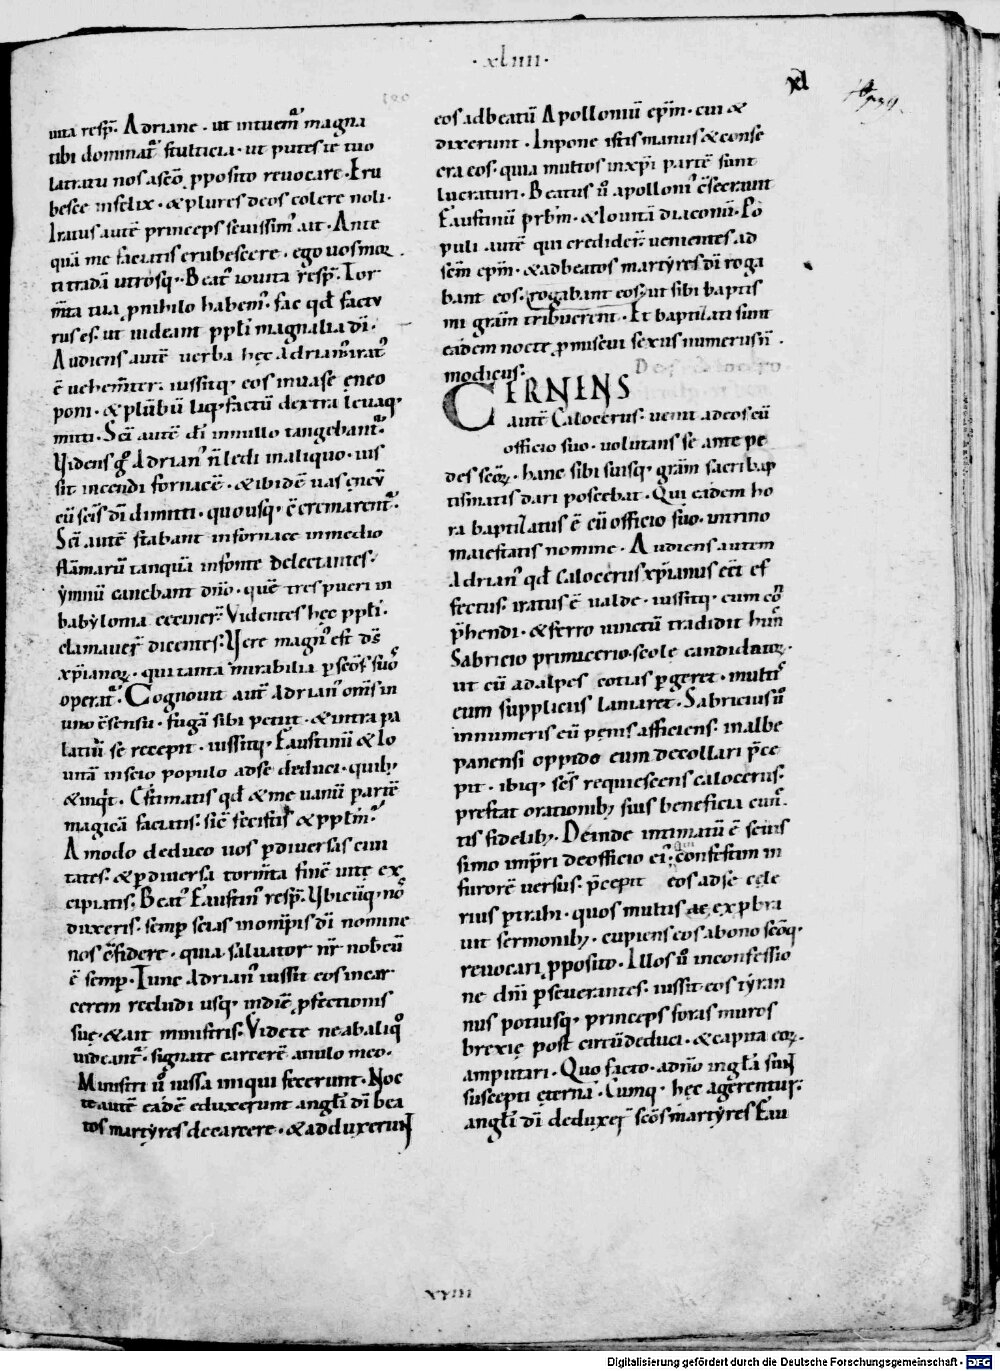 ·xliiii·
xl
uita resp̄. Adriane · ut intuemꝰ magna
tibi dominat᷑ stulticia · ut putes te tuo
latratu nos a sc̄o p̱posito reuocare · Eru
besce infelix · & plures deos colere noli·
Iratus autē princeps seuissimꝰ ait · Ante
quā me faciatis erubescere · ego uos morꝫ
ti tradā utrosq· Beatꝰ iouita resp̄. Tor
m̄ta tua p̱ nihilo habemꝰ· fac qđ factu
rus es· ut uideant pp̄li magnalia dī·
Audiens autē uerba hęc adrianꝰ iratꝰ
ē uehem̄ter· iussitq· eos in uase ęneo
poni · & plūbū liq·factū dextra leuaq·
mitti · Sc̄i autē dī in nullo tangebant᷑·
Videns g̊ Adrianꝰ n̄ ledi in aliquo · ius
sit incendi fornacē · & ibidē uas ęneū
cū sc̄is dī dimitti · quousq· c̄cremarent᷑·
Sc̄i autē stabant in fornace in medio
flāmarū tanquā in fonte delectantes·
ymnū canebant dn̄o · quē tres pueri in
babylonia cecinerꝰ· Videntes hęc pp̄li·
clamauerꝰ dicentes: Vere magnꝰ est d̄s
xp̄ianorꝫ · qui tanta mirabilia p̱ sc̄os suos
operat᷑· Cognouit aut̄ Adrianꝰ om̄s in
uno c̄sensu · fugā sibi petiit · & intra pa
latiū se recepit · iussitq· Faustinū & Io
uitā inscio populo ad se deduci · quibꝫ
& inq̇t · Estimatis qđ & me uanū p̱ artē
magicā faciatis· sic̄ fecistis & pp̄lm·
Amodo deduco uos p̱ diuersas ciui
tates· & p̱ diuersa torm̄ta finē uitę ex
cipiatis· Beatꝰ Faustinꝰ resp̄. Vbicūq· nos
duxeris· semp̱ scias in om̄ip̄tis dī nomine
nos c̄fidere · quia saluator nr̄ nobcū
ē semp̱· Tunc Adrianꝰ iussit eos in car
cerem recludi usq· in diē p̱fectionis
suę · & ait ministris· Videte ne ab aliq̊
uideant᷑· signate carcerē anulo meo·
Ministri ū iussa iniqui fecerunt· Noc
te autē eadē eduxerunt angl̄i dī bea
tos martyres de carcere · & adduxerunt
eos ad beatū Apolloniū ep̄m· cui &
dixerunt · Inpone istis manus & conse
cra eos· quia multos in xp̄i partē sunt
lucraturi· Beatus ū apollonꝰ c̄secrauit
Faustinū prb̄m · & Iouitā diaconū· Po
puli autē qui credider̄ uenientes ad
sc̄m ep̄m · & ad beatos martyres dī roga
bant eos · rogabant eos· ut sibi baptis
mi gr̄am tribuerent · Et baptizati sunt
eadem nocte p̱miscui sexus numerus n̄
modicus·
CERNENS
autē Calocerus· uenit ad eos cū
officio suo · uolutans se ante pe
des sc̄orꝫ · hanc sibi suisq· gr̄am sacri bap
tismatis dari poscebat· Qui eadem ho
ra baptizatus ē cū officio suo· in trino
maiestatis nomine· Audiens autem
Adrianꝰ qđ Calocerus xp̄ianus eēt ef
fectus· iratus ē ualde· iussitq· eum cō
p̄hendi · & ferro uinctū tradidit hunc
Sabricio primicerio scole candidatorꝫ·
ut eū ad alpes cotias p̱geret · multisq·
eum suppliciis laniaret· Sabricius ū
innumeris eū pęnis afficiens· in albe
panensi oppido eum decollari p̄ce
pit · ibiq· sc̄s requiescens calocerus·
prestat orationibꝫ suis beneficia cunc
tis fidelibꝫ· Deinde intimatū ē seuis
simo imp̄ri de officio eiꝰ· confestim in
furorē uersus· p̄cepit eos ad se cele
rius p̱trahi· quos multis ac exp̱bra
uit sermonibꝫ· cupiens eos a bono sc̄oq·
reuocari p̱posito· Illos ū in confessio
ne dn̄i p̱seuerantes· iussit eos tyran
nus potiusq· princeps foras muros
brexię post circūdeduci· & capita eorꝫ·
amputari· Quo facto · a dn̄o in gl̄ia sunt
suscepti ęterna· Cumq· hęc agerentur·
angl̄i dī deduxerꝰ sc̄os martyres Fau
XVIII
Digitalisierung gefördert durch die Deutsche Forschungsgemeinschaft · DFG